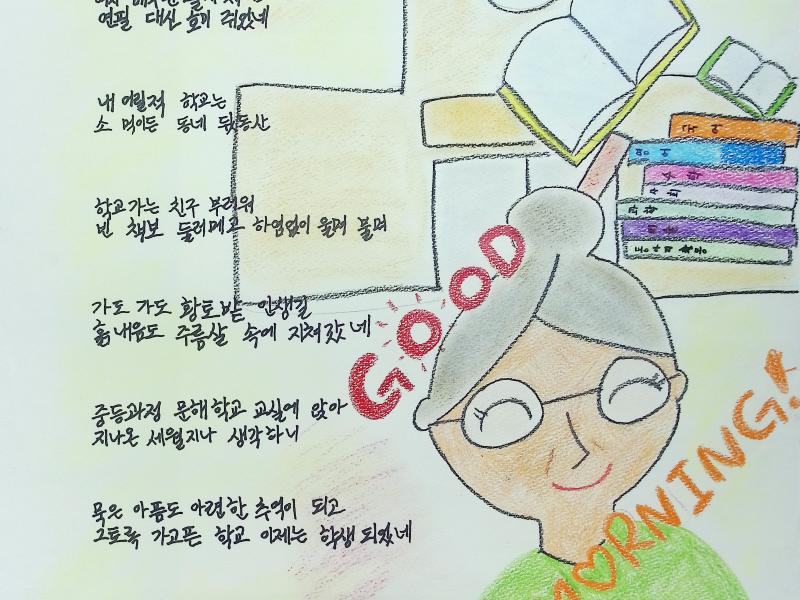 연필 대신 호미 쥐었네
내 어릴적 학교는
소 먹이든 동네 뒷동산
학교가는 친구 부러워
빈 책보 둘러메고 하염없이 울며 불며
가도 가도 황토밭 인생길
흙내음도 주름살 속에 지쳐갔네
중등과정 문해학교 교실에 앉아
지나온 세월지나 생각하니
묵은 아픔도 아련한 추억이 되고
그토록 가고픈 학교 이제는 학생 되었네
GOOD
MORNING!
국어
영어
수학
사회
과학